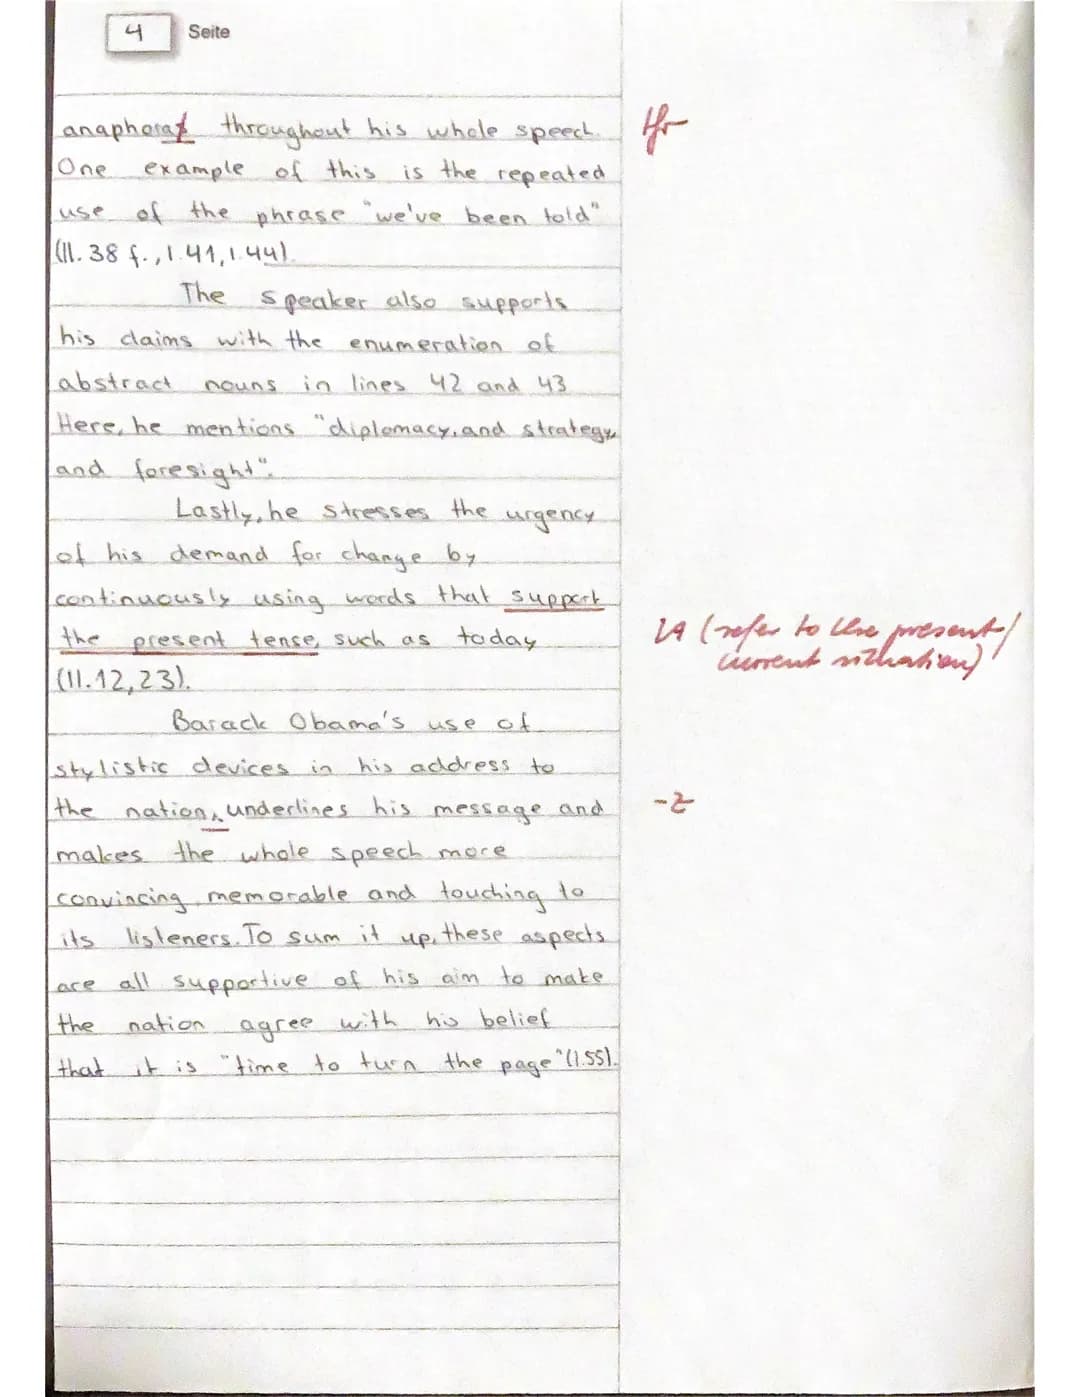 4 Seite
anaphora throughout his whole speech.
One example of this is the repeated
use of the phrase "we've been told"
(ll. 38 f., l.41, l.44).
The speaker also supports
his claims with the enumeration of
abstract nouns in lines 42 and 43
Here, he mentions "diplomacy, and strategy,
and foresight".
Lastly, he stresses the urgency
of his demand for change by
continuously using words that support
the present tense, such as today
(ll.12,23).
Barack Obama's use of
stylistic devices in his address to
the nation, underlines his message and
makes the whole speech more
convincing, memorable and touching to
its listeners. To sum it up, these aspects
are all supportive of his aim to make
the nation agree with his belief
that it is "time to turn the page" (l.55).
(refer to the present/
current situation)
-Z